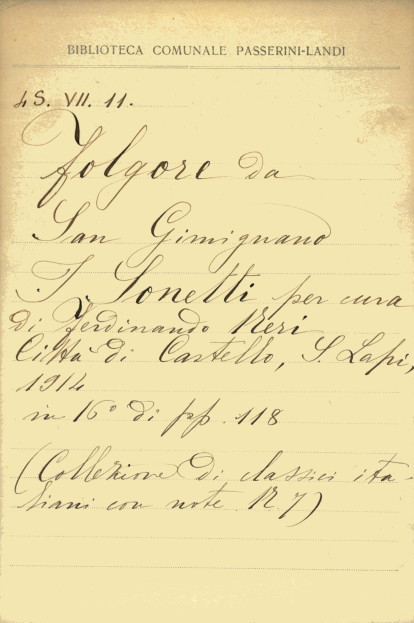 BIBLIOTECA COMUNALE PASSERINI-LANDI
4S. VII. 11.
Folgore da
San Gimignano
I Sonetti per cura
di Ferdinando Neri
Città di Castello, S. Lapi,
1914
in 16° di pp. 118
(Collezione di classici ita-
liani con note N. 7)